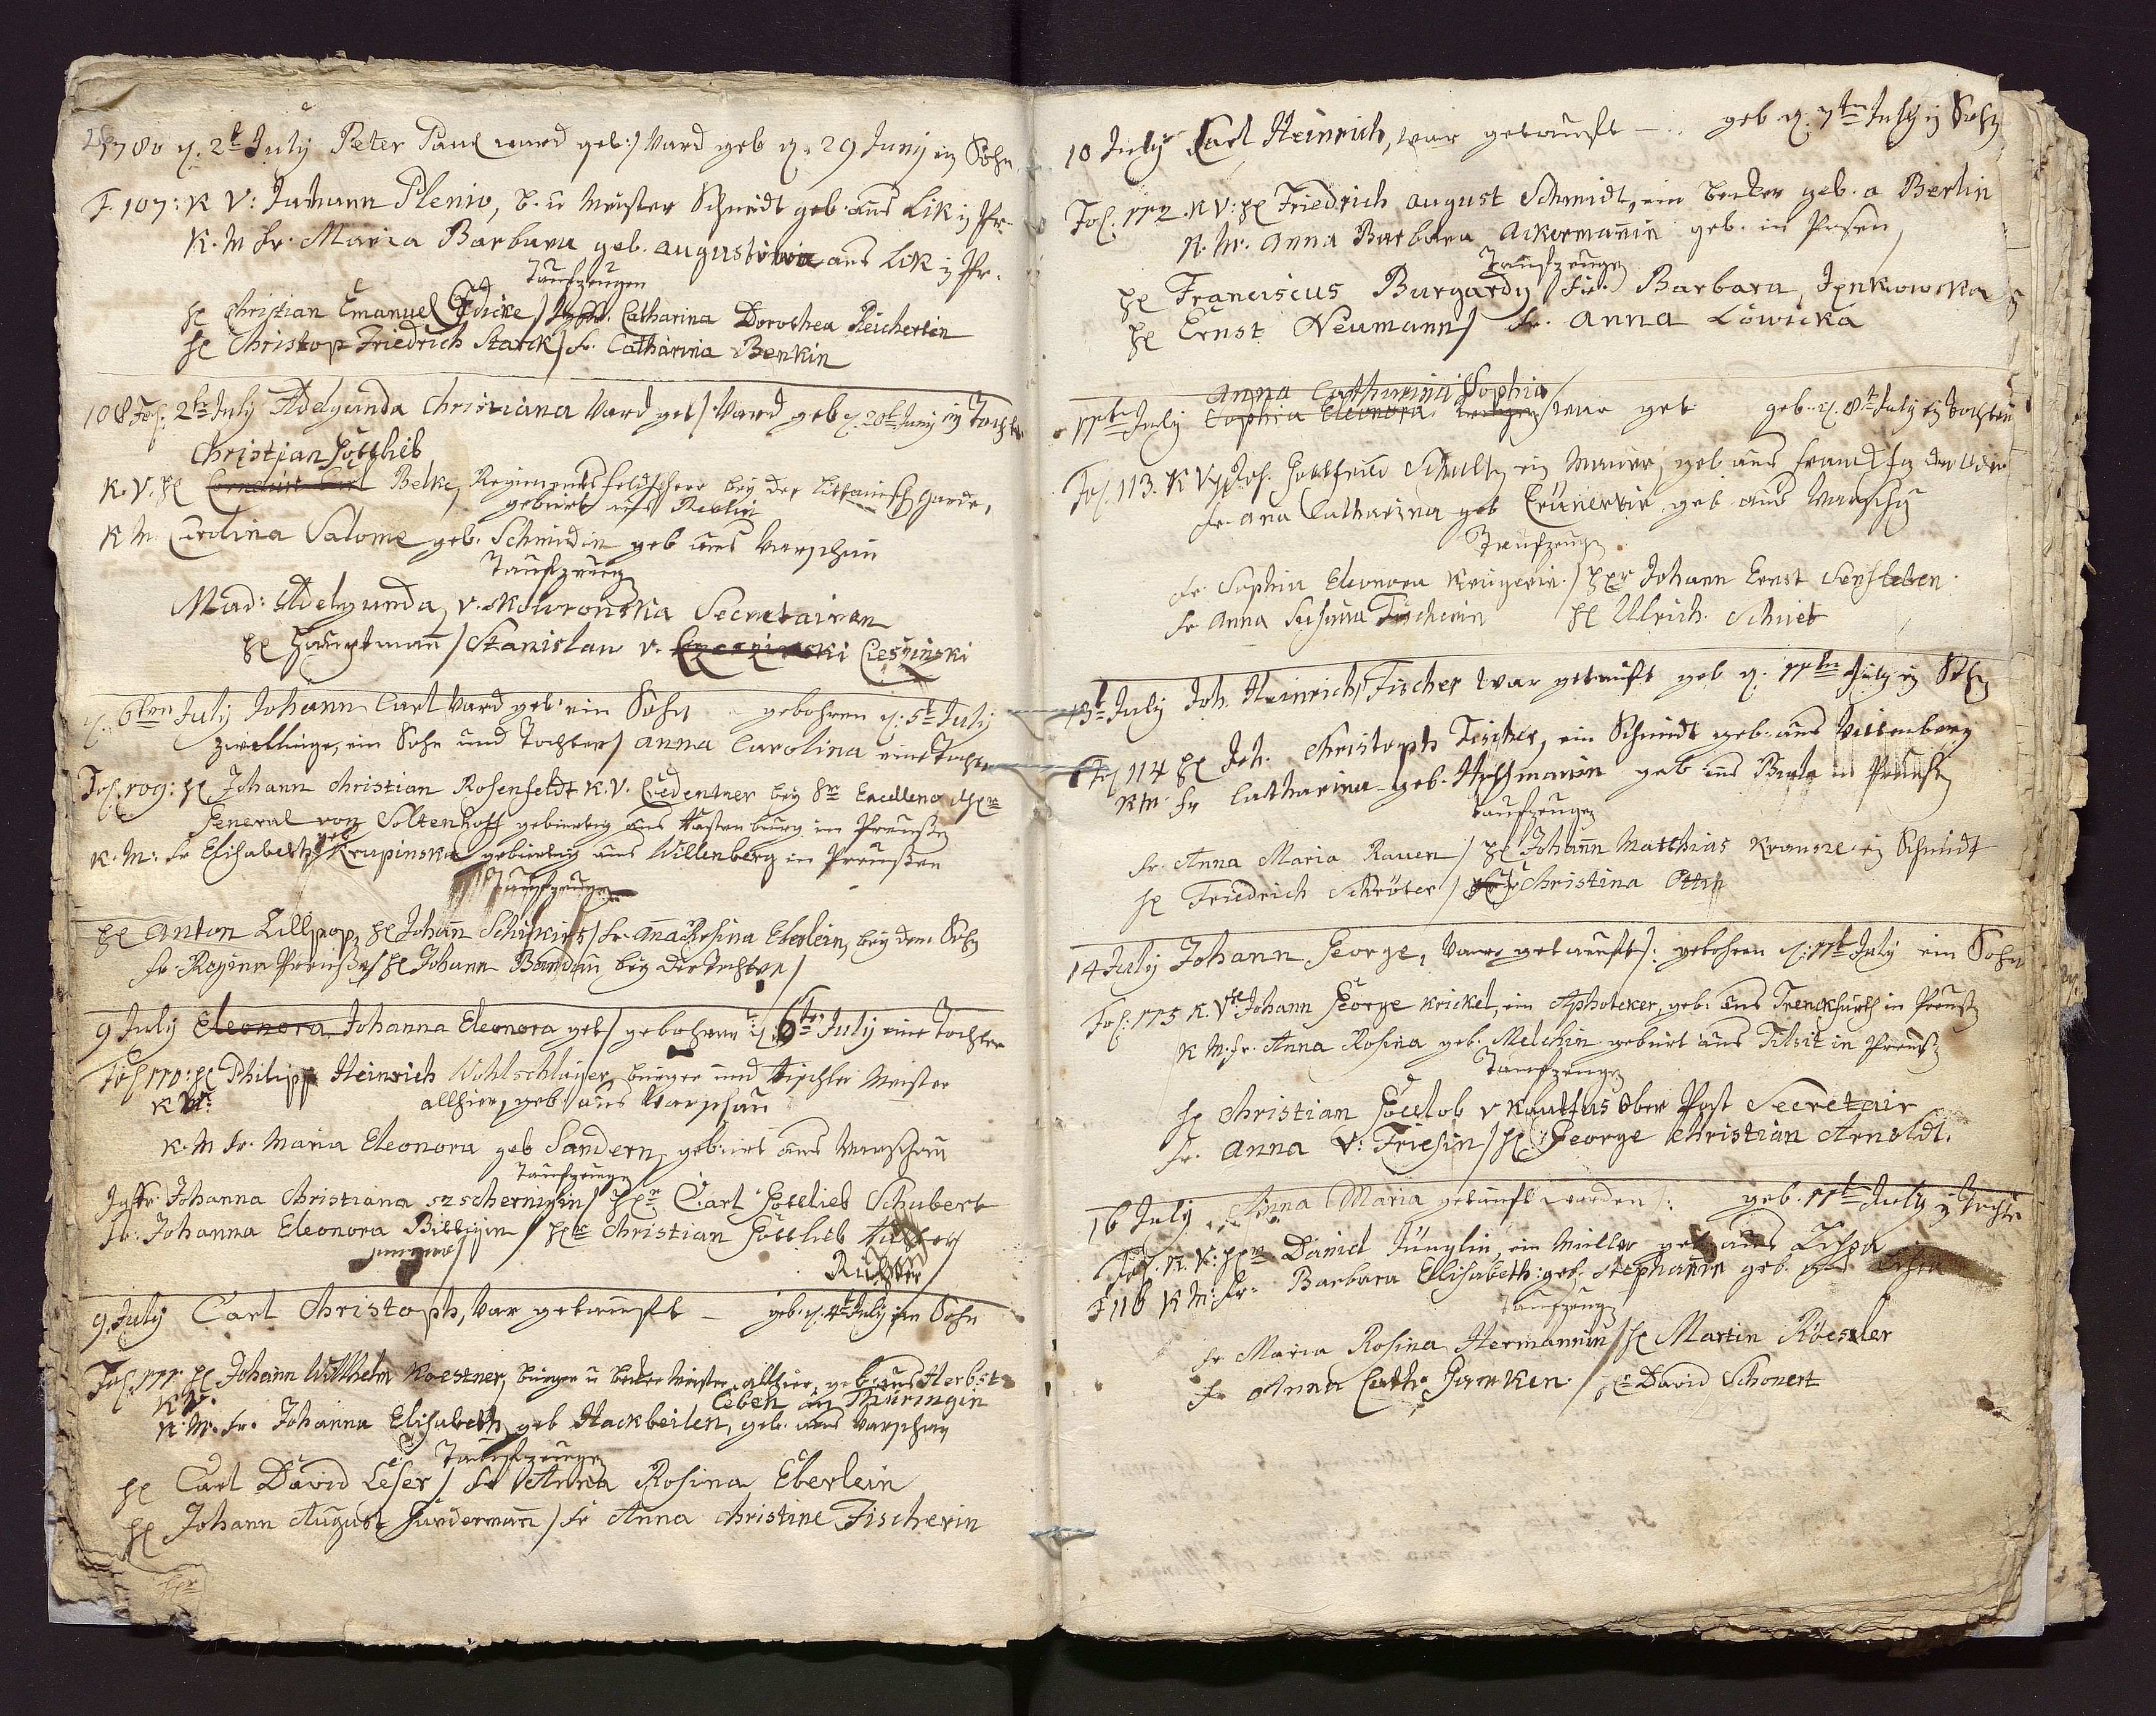 1780 d. 2t July Peter Paul ward geb:/ Ward geb d. 29 Juny ein Sohn
F. 107: K V: Johann Plenio, B. u Meister Schmidt geb. aus Lik in Pr.
K. M fr. Maria Barbara geb. augustinin aus Lik in Pr.
Taufzeugen
H Christian Emanuel Gedicke / Jgfr. Catharina Dorothea Reichertin
H Christop Friedrich Starck / fr. Catharina Benkin
108 Fol: 2te July Adelgunda Christiana Ward get / Ward geb d. 20t Juny ein Tochter
Christian Gottlieb
K. V. H Belke, Regimentsfeldscherr bey der Littauisch Garde,
gebürt aus Berlin
K M. Carolina Salome geb. Schmidin geb aus Warschau
Taufzeugen
Mad: Adelgunda v. Skowronska Secretairen
H Hauptmann / Stanislau v. Cieszinski
d. 6ten July Johann Carl Ward geb: ein Sohn gebohren d. 5t July
zwillinge, ein Sohn und Tochter / Anna Carolina eine Tochter
Fol. 109: H Johann Christian Rosenfeldt K. V. Credentzer bey Sr Excellenc
General von Soltenhoff gebürtig aus Rastenburg in Preußen
K. M: fr Elisabeth geb Krupinska gebürtig aus Willenberg in Preußen
Taufzeugen
H Anton Lillpop, H Johann / fr. Ana Rosina Eberlein, bey dem Sohn
fr. Regina Preußin / H Johann Bandau bey der Tochter /
9 July Eleonora Johanna Eleonora get / gebohren d. 6ten July eine Tochter
Fol 110: H Philipp Heinrich Wohlschläger, bürger und Tischler Meister
K V: allhier, geb. aus Warschau
K. M fr. Maria Eleonora geb Sandern, gebürt aus Warschau
Taufzeugen
Jgfr. Johanna Christiana / Hr Carl Gottlieb Schubert
fr. Johanna Eleonora / Hr Christian Gottlieb
Richter
9 July Carl Christoph, War getauft — geb. d. 4t July ein Sohn
Fol. 111 H Johann Willhelm Koestner, bürger u becker Meister allhier, geb. aus Herbst
K V. leben in Thüringin
K. M. fr. Johanna Elisabeth geb Hackbeilen, geb. aus Warschau
Taufzeugen
H Carl David Leser / fr Anna Rosina Eberlein
H Johann August Hundermann / fr Anna Christine Fischerin
10 July Carl Heinrich, war getauft — geb d. 7ten July ein Sohn
Fol. 112. K V: H Friedrich august Schmidt, ein becker geb. a Berlin
K. M. Anna Barbara Ackermannin geb. in Posen,
Taufzeugen
H Franciscus Burgardy / fr. Barbara Jenkowska
H Ernst Neumann / fr. Anna Lowicka
Anna Catharina Sophia
11te July Sophia Eleonora / war get geb. d. 8t July ein tochter
Fol. 113. K V H Joh. Gottfried Schultz ein Maurer, geb aus franckfu der Oder
fr. Ana Catharina geb Grünertin geb aus Warschau
Taufzeugen
fr Sophia Eleonora Krügerin / Herr Johann Ernst Senfleben
fr Anna Susanna Fischerin H Ulrich Schiet
13t July Joh. Heinrich Fischer war getauft geb d. 11ten July ein Sohn
Fol 114 H Joh. Christoph Fischer, ein Schmidt geb. aus Wittenberg
K M fr Catharina geb. Hoffmanin geb aus in Preußen
Taufzeugen
fr. Anna Maria Rauen / H Johann Matthias Krause ein Schmidt
H Friedrich Schröter / fr Christina
14 July Johann George, Ward getauft /: gebohren d. 11t July ein Sohn
Fol: 115 K. V H Johann George Krickel, ein Aphoteker, geb. aus in Preuß
K M. fr. Anna Rosina geb. Melchin gebürt aus Tilsit in Preuß
Taufzeugen
H Christian Gottlob v Kauffus Ober Post Secretair
fr. Anna V: Friesin / H George Christian Arnoldt.
16 July Anna Maria getauft worden /: geb. 11t July ein Tochter
Fol. K. V: Herr Daniel Jünglin, ein Müller geb. aus
F 116 K M: fr. Barbara Elisabeth geb. Stephanin geb. aus
Taufzeugen
fr Maria Rosina Hermannin / H Martin Röesler
fr Anna Cath. Janken / H David Schonert